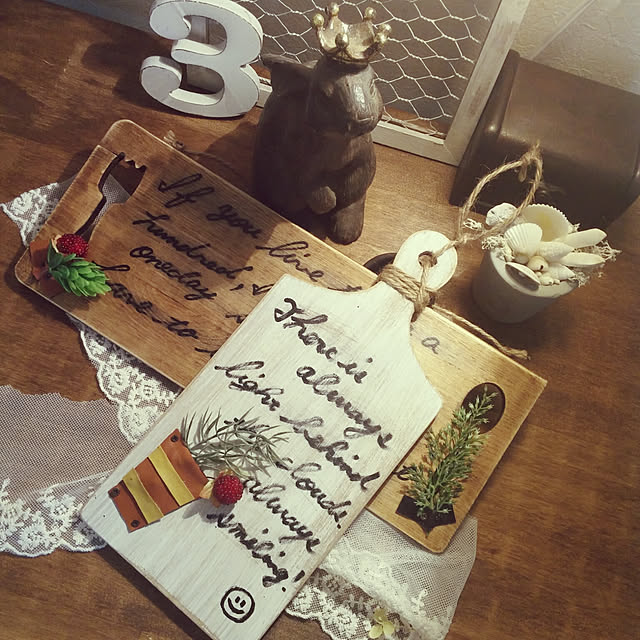 3
If you live t
hundred, I
oneday
have to
a
There is
always
light behind
the clouds
always
smiling!